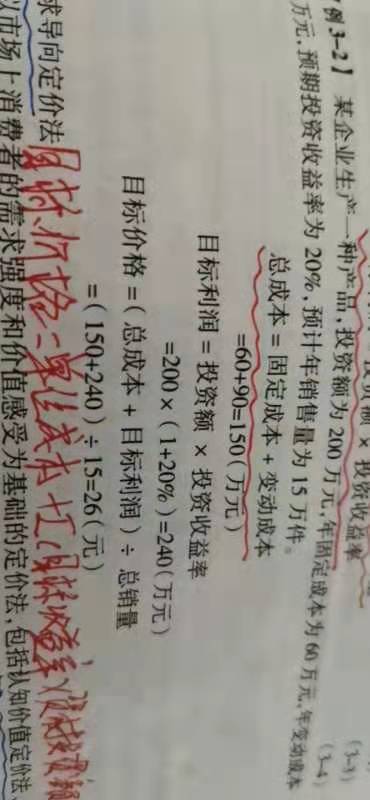 投资额 × 投资收益率
(3-3)
(3-4)
例3-2】 某企业生产一种产品,投资额为200万元,年固定成本为60万元,年变动成本
万元,预期投资收益率为20%,预计年销售量为15万件。
总成本=固定成本+变动成本
=60+90=150(万元)
目标利润=投资额×投资收益率
=200×(1+20%)=240(万元)
目标价格=(总成本+目标利润)÷总销量
=(150+240)÷15=26(元)
目标价格=单位成本+[(目标收益率×投资额
求导向定价法
以市场上消费者的需求强度和价值感受为基础的定价法,包括认知价值定价法、